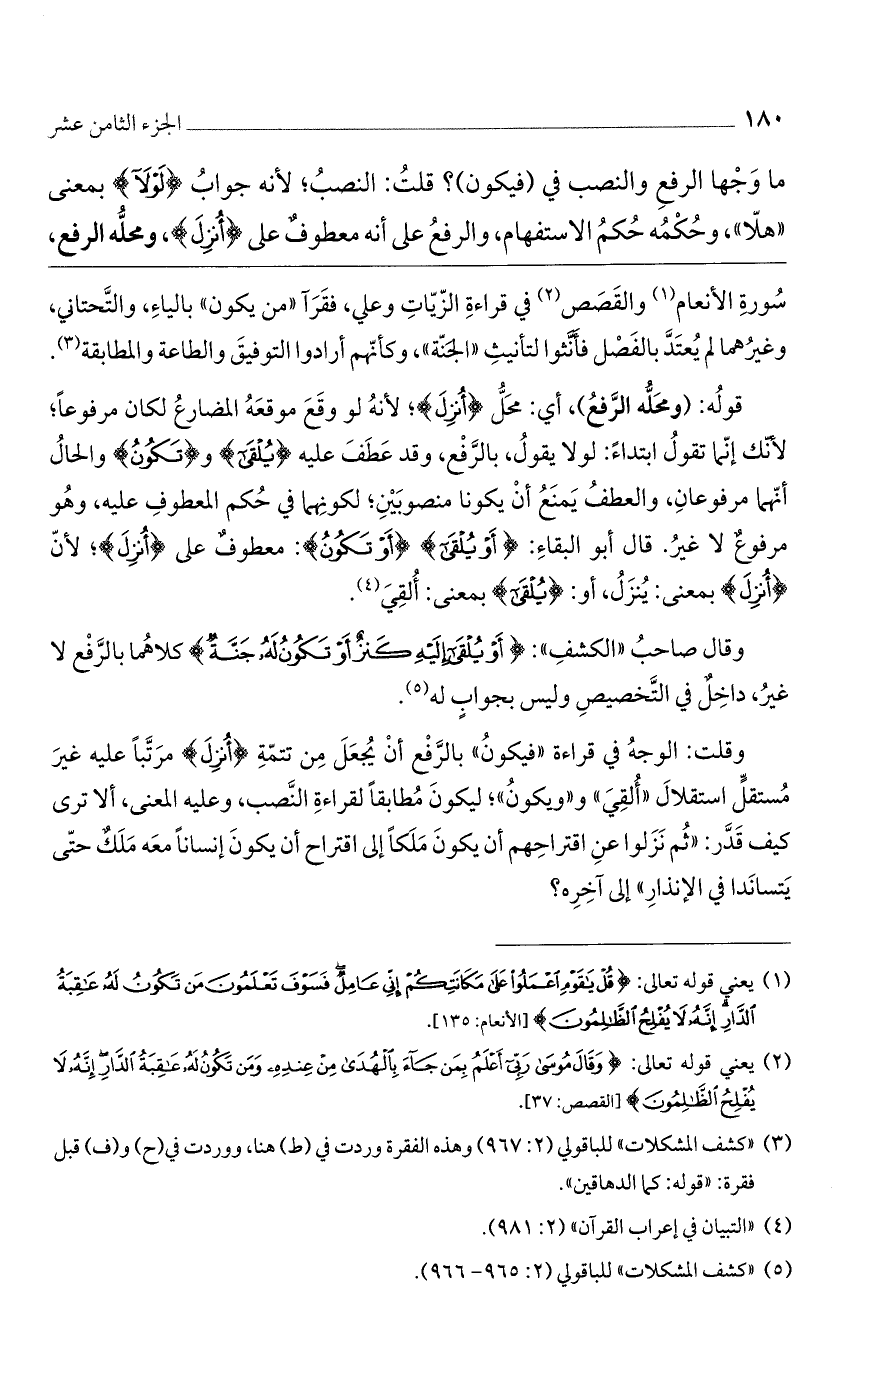 ١٨٠ ــــــــــــــــــــــــــــــ الجزء الثامن عشر
ما وَجْها الرفعِ والنصب في (فيكون)؟ قلتُ: النصبُ؛ لأنه جوابُ ﴿لَوْلَآ﴾ بمعنى
«هلّا»، وحُكْمُه حُكمُ الاستفهام، والرفعُ على أنه معطوفٌ على ﴿أُنزِلَ﴾، ومحلُّه الرفع،
سُورةِ الأنعام(١) والقَصَص(٢) في قراءةِ الزّيّاتِ وعلي، فقَرَآ «من يكون» بالياءِ، والتَّحتاني،
وغيرُهما لم يُعتَدَّ بالفَصْل فأنَّثوا لتأنيثِ «الجَنّة»، وكأنّهم أرادوا التوفيقَ والطاعة والمطابقة(٣).
قولُه: (ومحَلُّه الرَّفعُ)، أي: محَلُّ ﴿أُنزِلَ﴾؛ لأنهُ لو وقَعَ موقعَهُ المضارعُ لكان مرفوعاً؛
لأنّك إنّما تقولُ ابتداءً: لولا يقولُ، بالرَّفْع، وقد عَطَفَ عليه ﴿يُلْقَىٰٓ﴾ و﴿تَكُونُ﴾ والحالُ
أنّهما مرفوعانِ، والعطفُ يَمنَعُ أنْ يكونا منصوبَيْنِ؛ لكونِهما في حُكم المعطوفِ عليه، وهُو
مرفوعٌ لا غيرُ. قال أبو البقاءِ: ﴿أَوْ يُلْقَىٰٓ﴾ ﴿أَوْ تَكُونُ﴾: معطوفٌ على ﴿أُنزِلَ﴾؛ لأنّ
﴿أُنزِلَ﴾ بمعنى: يُنزَلُ، أو: ﴿يُلْقَىٰٓ﴾ بمعنى: أُلقِيَ(٤).
وقال صاحبُ «الكشفِ»: ﴿أَوْ يُلْقَىٰٓ إِلَيْهِ كَنزٌ أَوْ تَكُونُ لَهُۥ جَنَّةٌ﴾ كلاهُما بالرَّفْع لا
غيرُ، داخِلٌ في التَّخصيصِ وليس بجوابٍ له(٥).
وقلت: الوجهُ في قراءة «فيكونُ» بالرَّفْع أنْ يُجعَلَ مِن تتمّةِ ﴿أُنزِلَ﴾ مرَتَّباً عليه غيرَ
مُستقلٍّ استقلالَ «أُلقِيَ» و«ويكونُ»؛ ليكونَ مُطابقاً لقراءةِ النَّصب، وعليه المعنى، ألا ترى
كيف قَدَّر: «ثُم نَزَلوا عنِ اقتراحِهم أن يكونَ مَلَكاً إلى اقتراح أن يكونَ إنساناً معَه مَلَكٌ حتّى
يَتساندا في الإنذارِ» إلى آخِرِه؟
(١) يعني قوله تعالى: ﴿قُلْ يَٰقَوْمِ ٱعْمَلُوا۟ عَلَىٰ مَكَانَتِكُمْ إِنِّى عَامِلٌ ۖ فَسَوْفَ تَعْلَمُونَ مَن تَكُونُ لَهُۥ عَٰقِبَةُ
ٱلدَّارِ ۗ إِنَّهُۥ لَا يُفْلِحُ ٱلظَّٰلِمُونَ﴾ [الأنعام: ١٣٥].
(٢) يعني قوله تعالى: ﴿وَقَالَ مُوسَىٰ رَبِّىٓ أَعْلَمُ بِمَن جَآءَ بِٱلْهُدَىٰ مِنْ عِندِهِۦ وَمَن تَكُونُ لَهُۥ عَٰقِبَةُ ٱلدَّارِ ۖ إِنَّهُۥ لَا
يُفْلِحُ ٱلظَّٰلِمُونَ﴾ [القصص: ٣٧].
(٣) «كشف المشكلات» للباقولي (٢: ٩٦٧) وهذه الفقرة وردت في (ط) هنا، ووردت في (ح) و(ف) قبل
فقرة: «قوله: كما الدهاقين».
(٤) «التبيان في إعراب القرآن» (٢: ٩٨١).
(٥) «كشف المشكلات» للباقولي (٢: ٩٦٥- ٩٦٦).